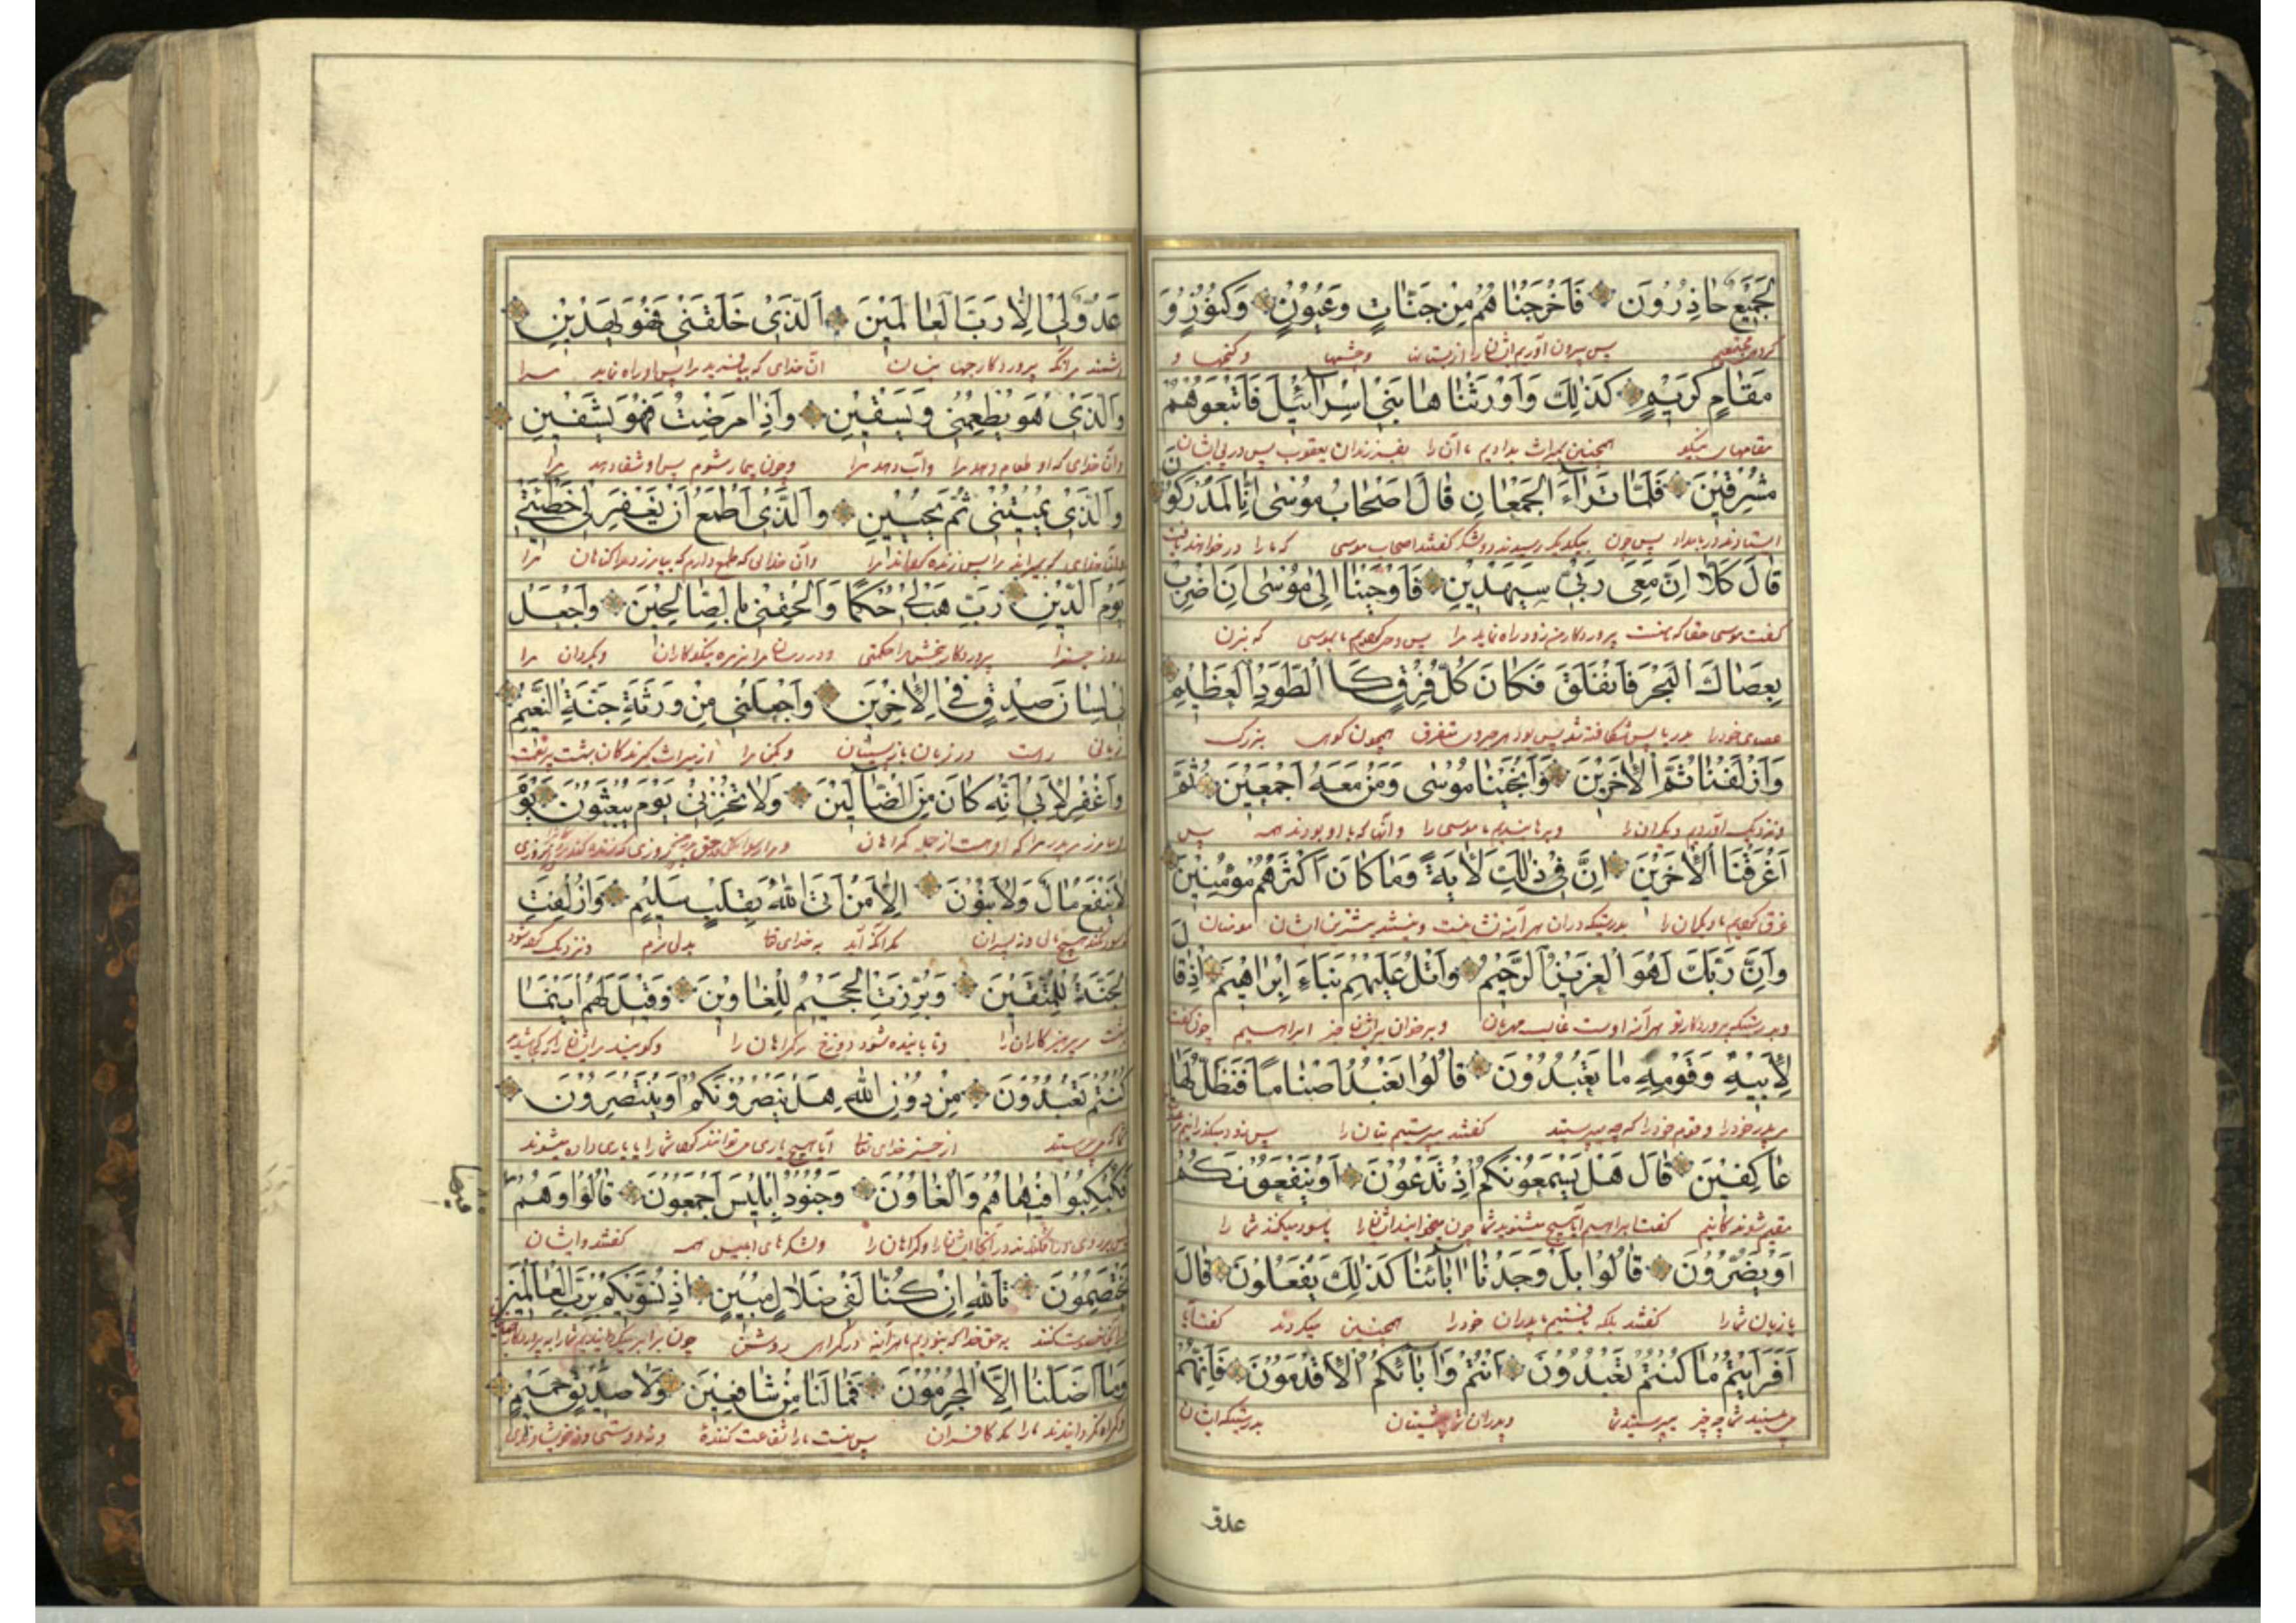 لَجَمِيعٌ حَاذِرُونَ فَاَخْرَجْنَاهُمْ مِنْ جَنَّاتٍ وَعُيُونٍ وَكُنُوزٍ وَ
پس بیرون آوردیم ایشان را از بستان و چشمها و کنجها و
مَقَامٍ كَرِيمٍ كَذٰلِكَ وَاَوْرَثْنَاهَا بَنِي اِسْرَآئِيلَ فَاَتْبَعُوهُمْ
مقامهای نیکو همچنین میراث بدادیم ما آن را بفرزندان یعقوب پس در پی ایشان
مُشْرِقِينَ فَلَمَّا تَرَآءَ الْجَمْعَانِ قَالَ اَصْحَابُ مُوسٰى اِنَّا لَمُدْرَكُونَ
پس چون بیکدیگر رسیدند دو لشکر گفتند اصحاب موسی که ما را در خواهند یافت
قَالَ كَلَّا اِنَّ مَعِيَ رَبِّي سَيَهْدِينِ فَاَوْحَيْنَا اِلٰى مُوسٰى اَنِ اضْرِبْ
گفت موسی حقا که بامنست پروردکار من زود راه نماید مرا پس وحی کردیم ما بموسی که بزن
بِعَصَاكَ الْبَحْرَ فَانْفَلَقَ فَكَانَ كُلُّ فِرْقٍ كَالطَّوْدِ الْعَظِيمِ
عصای خود را بدریا پس شکافته شد پس بود هر جزوی متفرق همچون کوهی بزرک
وَاَزْلَفْنَا ثَمَّ الْاٰخَرِينَ وَاَنْجَيْنَا مُوسٰى وَمَنْ مَعَهُ اَجْمَعِينَ ثُمَّ
و نزدیک آوردیم دیکران را و برهانیدیم ما موسی را و آنها که با او بودند همه پس
اَغْرَقْنَا الْاٰخَرِينَ اِنَّ فِي ذٰلِكَ لَاٰيَةً وَمَا كَانَ اَكْثَرُهُمْ مُؤْمِنِينَ
غرق کردیم ما دیکران را بدرستیکه در آن هر آینه نشانیست و نیستند بیشترین ایشان مومنان
وَاِنَّ رَبَّكَ لَهُوَ الْعَزِيزُ الرَّحِيمُ وَاتْلُ عَلَيْهِمْ نَبَاَءَ اِبْرَاهِيمَ اِذْ قَالَ
و بدرستیکه پروردکار تو هر آینه اوست غالب مهربان و برخوان بر ایشان خبر ابراهیم چون گفت
لِاَبِيهِ وَقَوْمِهِ مَا تَعْبُدُونَ قَالُوا نَعْبُدُ اَصْنَامًا فَنَظَلُّ لَهَا
مر پدر خود را و قوم خود را که چه میپرستید گفتند میپرستیم بتان را
عَاكِفِينَ قَالَ هَلْ يَسْمَعُونَكُمْ اِذْ تَدْعُونَ اَوْ يَنْفَعُونَكُمْ
گفت ابراهیم آیا هیچ میشنوند شما چون میخوانید ایشان را یا سود میکنند شما را
اَوْ يَضُرُّونَ قَالُوا بَلْ وَجَدْنَا اٰبَآئَنَا كَذٰلِكَ يَفْعَلُونَ قَالَ
یا زیان شما را گفتند بلکه یافتیم ما پدران خود را همچنین میکردند گفت آیا
اَفَرَاَيْتُمْ مَا كُنْتُمْ تَعْبُدُونَ اَنْتُمْ وَاٰبَآئُكُمُ الْاَقْدَمُونَ فَاِنَّهُمْ
می بینید شما چه چیز میپرستید شما و پدران شما پیشینان بدرستیکه ایشان
عدوّ
عَدُوٌّ لِي اِلَّا رَبَّ الْعَالَمِينَ اَلَّذِي خَلَقَنِي فَهُوَ يَهْدِينِ
دشمنند مرا مگر پروردکار جهانیان آن خدای که بیافرید مرا پس او راه نماید مرا
وَالَّذِي هُوَ يُطْعِمُنِي وَيَسْقِينِ وَاِذَا مَرِضْتُ فَهُوَ يَشْفِينِ
و آن خدای که او طعام دهد مرا و آب دهد مرا و چون بیمار شوم پس او شفا دهد مرا
وَالَّذِي يُمِيتُنِي ثُمَّ يُحْيِينِ وَالَّذِي اَطْمَعُ اَنْ يَغْفِرَ لِي خَطِيئَتِي
و آن خدای که بمیراند مرا پس زنده کرداند مرا و آن خدائی که طمع دارم که بیامرزد مرا کناهان مرا
يَوْمَ الدِّينِ رَبِّ هَبْ لِي حُكْمًا وَاَلْحِقْنِي بِالصَّالِحِينَ وَاجْعَلْ
روز جزا پروردکار ببخش مرا حکمتی و در رسان مرا بزمره نیکوکاران و بکردان مرا
لِي لِسَانَ صِدْقٍ فِي الْاٰخِرِينَ وَاجْعَلْنِي مِنْ وَرَثَةِ جَنَّةِ النَّعِيمِ
زبانی راست در زبان باز پسینان و بکن مرا از میراث گیرندکان بهشت پر نعمت
وَاغْفِرْ لِاَبِي اِنَّهُ كَانَ مِنَ الضَّآلِّينَ وَلَا تُخْزِنِي يَوْمَ يُبْعَثُونَ يَوْمَ
و بیامرز مر پدر مرا که او هست از جمله کمراهان
لَا يَنْفَعُ مَالٌ وَلَا بَنُونَ اِلَّا مَنْ اَتَى اللّٰهَ بِقَلْبٍ سَلِيمٍ وَاُزْلِفَتِ
سود نکند هیچ مالی و نه پسران مکر آنکه آید به خدای تعا بدلی سالم و نزدیک کرده شود
الْجَنَّةُ لِلْمُتَّقِينَ وَبُرِّزَتِ الْجَحِيمُ لِلْغَاوِينَ وَقِيلَ لَهُمْ اَيْنَمَا
بهشت مر پرهیزکاران را و نمایانیده شود دوزخ مر کمراهان را
كُنْتُمْ تَعْبُدُونَ مِنْ دُونِ اللّٰهِ هَلْ يَنْصُرُونَكُمْ اَوْ يَنْتَصِرُونَ
از جز خدای تعا آیا هیچ یاری میتوانند کرد شما را یا یاری داده میشوند
فَكُبْكِبُوا فِيهَا هُمْ وَالْغَاوُنَ وَجُنُودُ اِبْلِيسَ اَجْمَعُونَ قَالُوا وَهُمْ
و لشکرهای ابلیس همه گفتند و ایشان
فیها
يَخْتَصِمُونَ تَاللّٰهِ اِنْ كُنَّا لَفِي ضَلَالٍ مُبِينٍ اِذْ نُسَوِّيكُمْ بِرَبِّ الْعَالَمِينَ
به حق خدا که بودیم ما هر آینه در کمراهی روشن
وَمَا اَضَلَّنَا اِلَّا الْمُجْرِمُونَ فَمَا لَنَا مِنْ شَافِعِينَ وَلَا صَدِيقٍ حَمِيمٍ
و کمراه نکردانیدند ما را مکر کافران پس نیست ما را شفاعت کننده